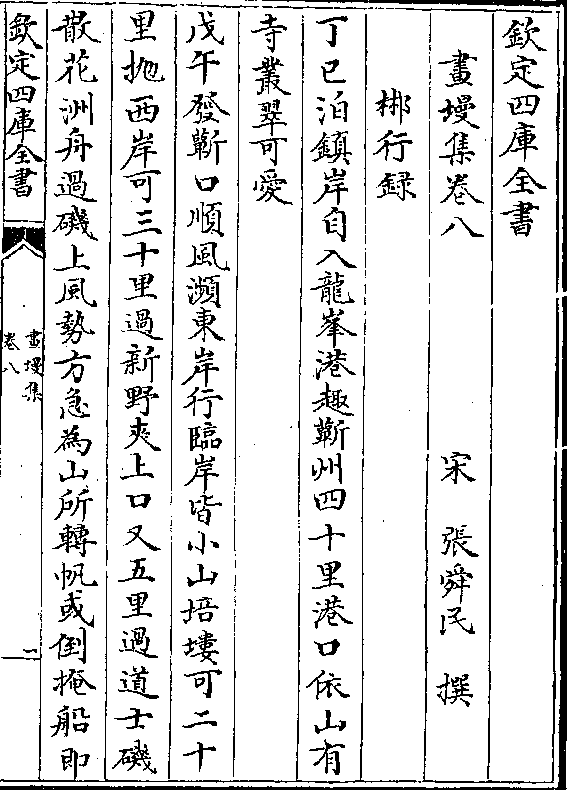 欽定四庫全書
畫墁集卷八
宋 張舜民 撰
郴行録
丁巳泊鎮岸自入龍峯港趣蘄州四十里港口依山有
寺叢翠可愛
戊午發蘄口順風瀕東岸行臨岸皆小山培塿可二十
里拋西岸可三十里過新野夾上口又五里過道士磯
散花洲舟過磯上風勢方急為山所轉帆或倒掩船即
欽定四庫全書
畫墁集
卷八
一